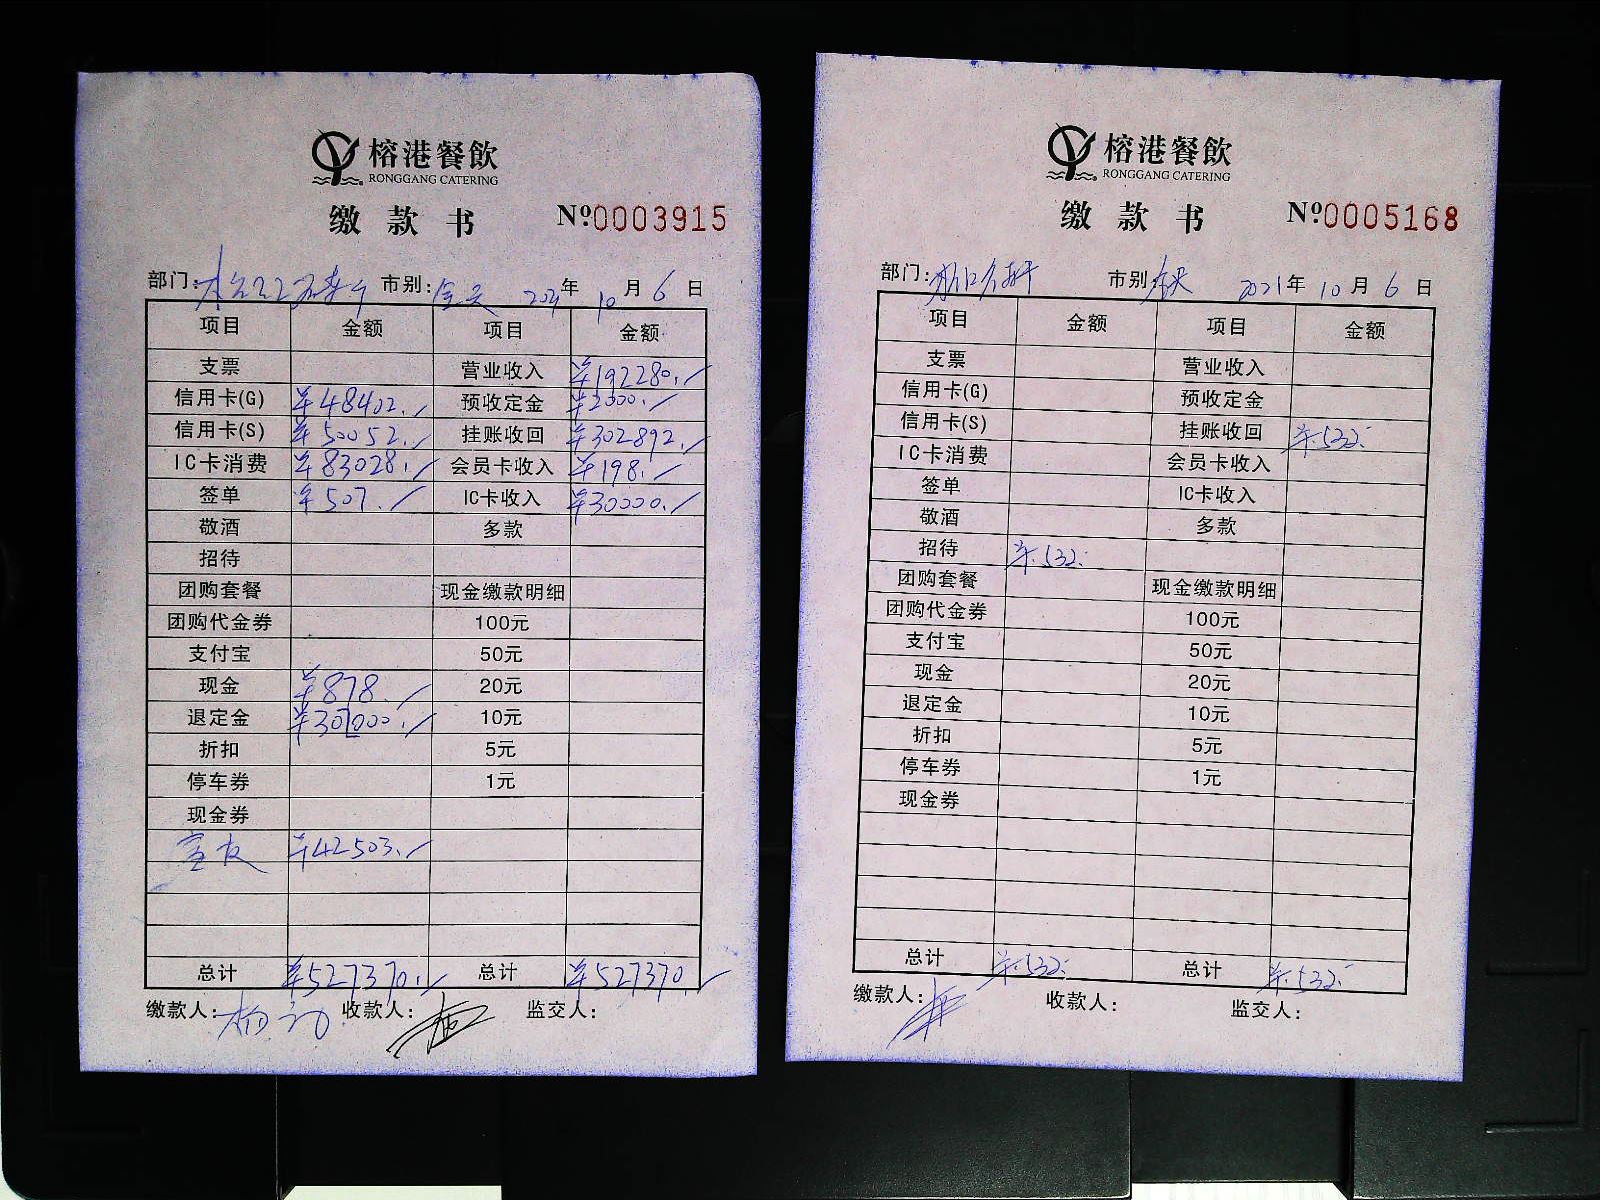 榕港餐飲
RONGGANG CATERING
缴款书 Nº0003915
部门: 市别:全天 2021年10月6日
项目 金额 项目 金额
支票 营业收入 ¥192280.
信用卡(G) ¥48402. 预收定金 ¥2000.
信用卡(S) ¥50052. 挂账收回 ¥302892.
IC卡消费 ¥83028. 会员卡收入 ¥198.
签单 ¥507. IC卡收入 ¥30000.
敬酒 多款
招待
团购套餐 现金缴款明细
团购代金券 100元
支付宝 50元
现金 ¥878. 20元
退定金 ¥302000. 10元
折扣 5元
停车券 1元
现金券
¥42503.
总计 ¥527370. 总计 ¥527370.
缴款人: 收款人: 监交人:
榕港餐飲
RONGGANG CATERING
缴款书 Nº0005168
部门: 市别:全天 2021年10月6日
项目 金额 项目 金额
支票 营业收入
信用卡(G) 预收定金
信用卡(S) 挂账收回 ¥532.
IC卡消费 会员卡收入
签单 IC卡收入
敬酒 多款
招待 ¥532.
团购套餐 现金缴款明细
团购代金券 100元
支付宝 50元
现金 20元
退定金 10元
折扣 5元
停车券 1元
现金券
总计 ¥532. 总计 ¥532.
缴款人: 收款人: 监交人: